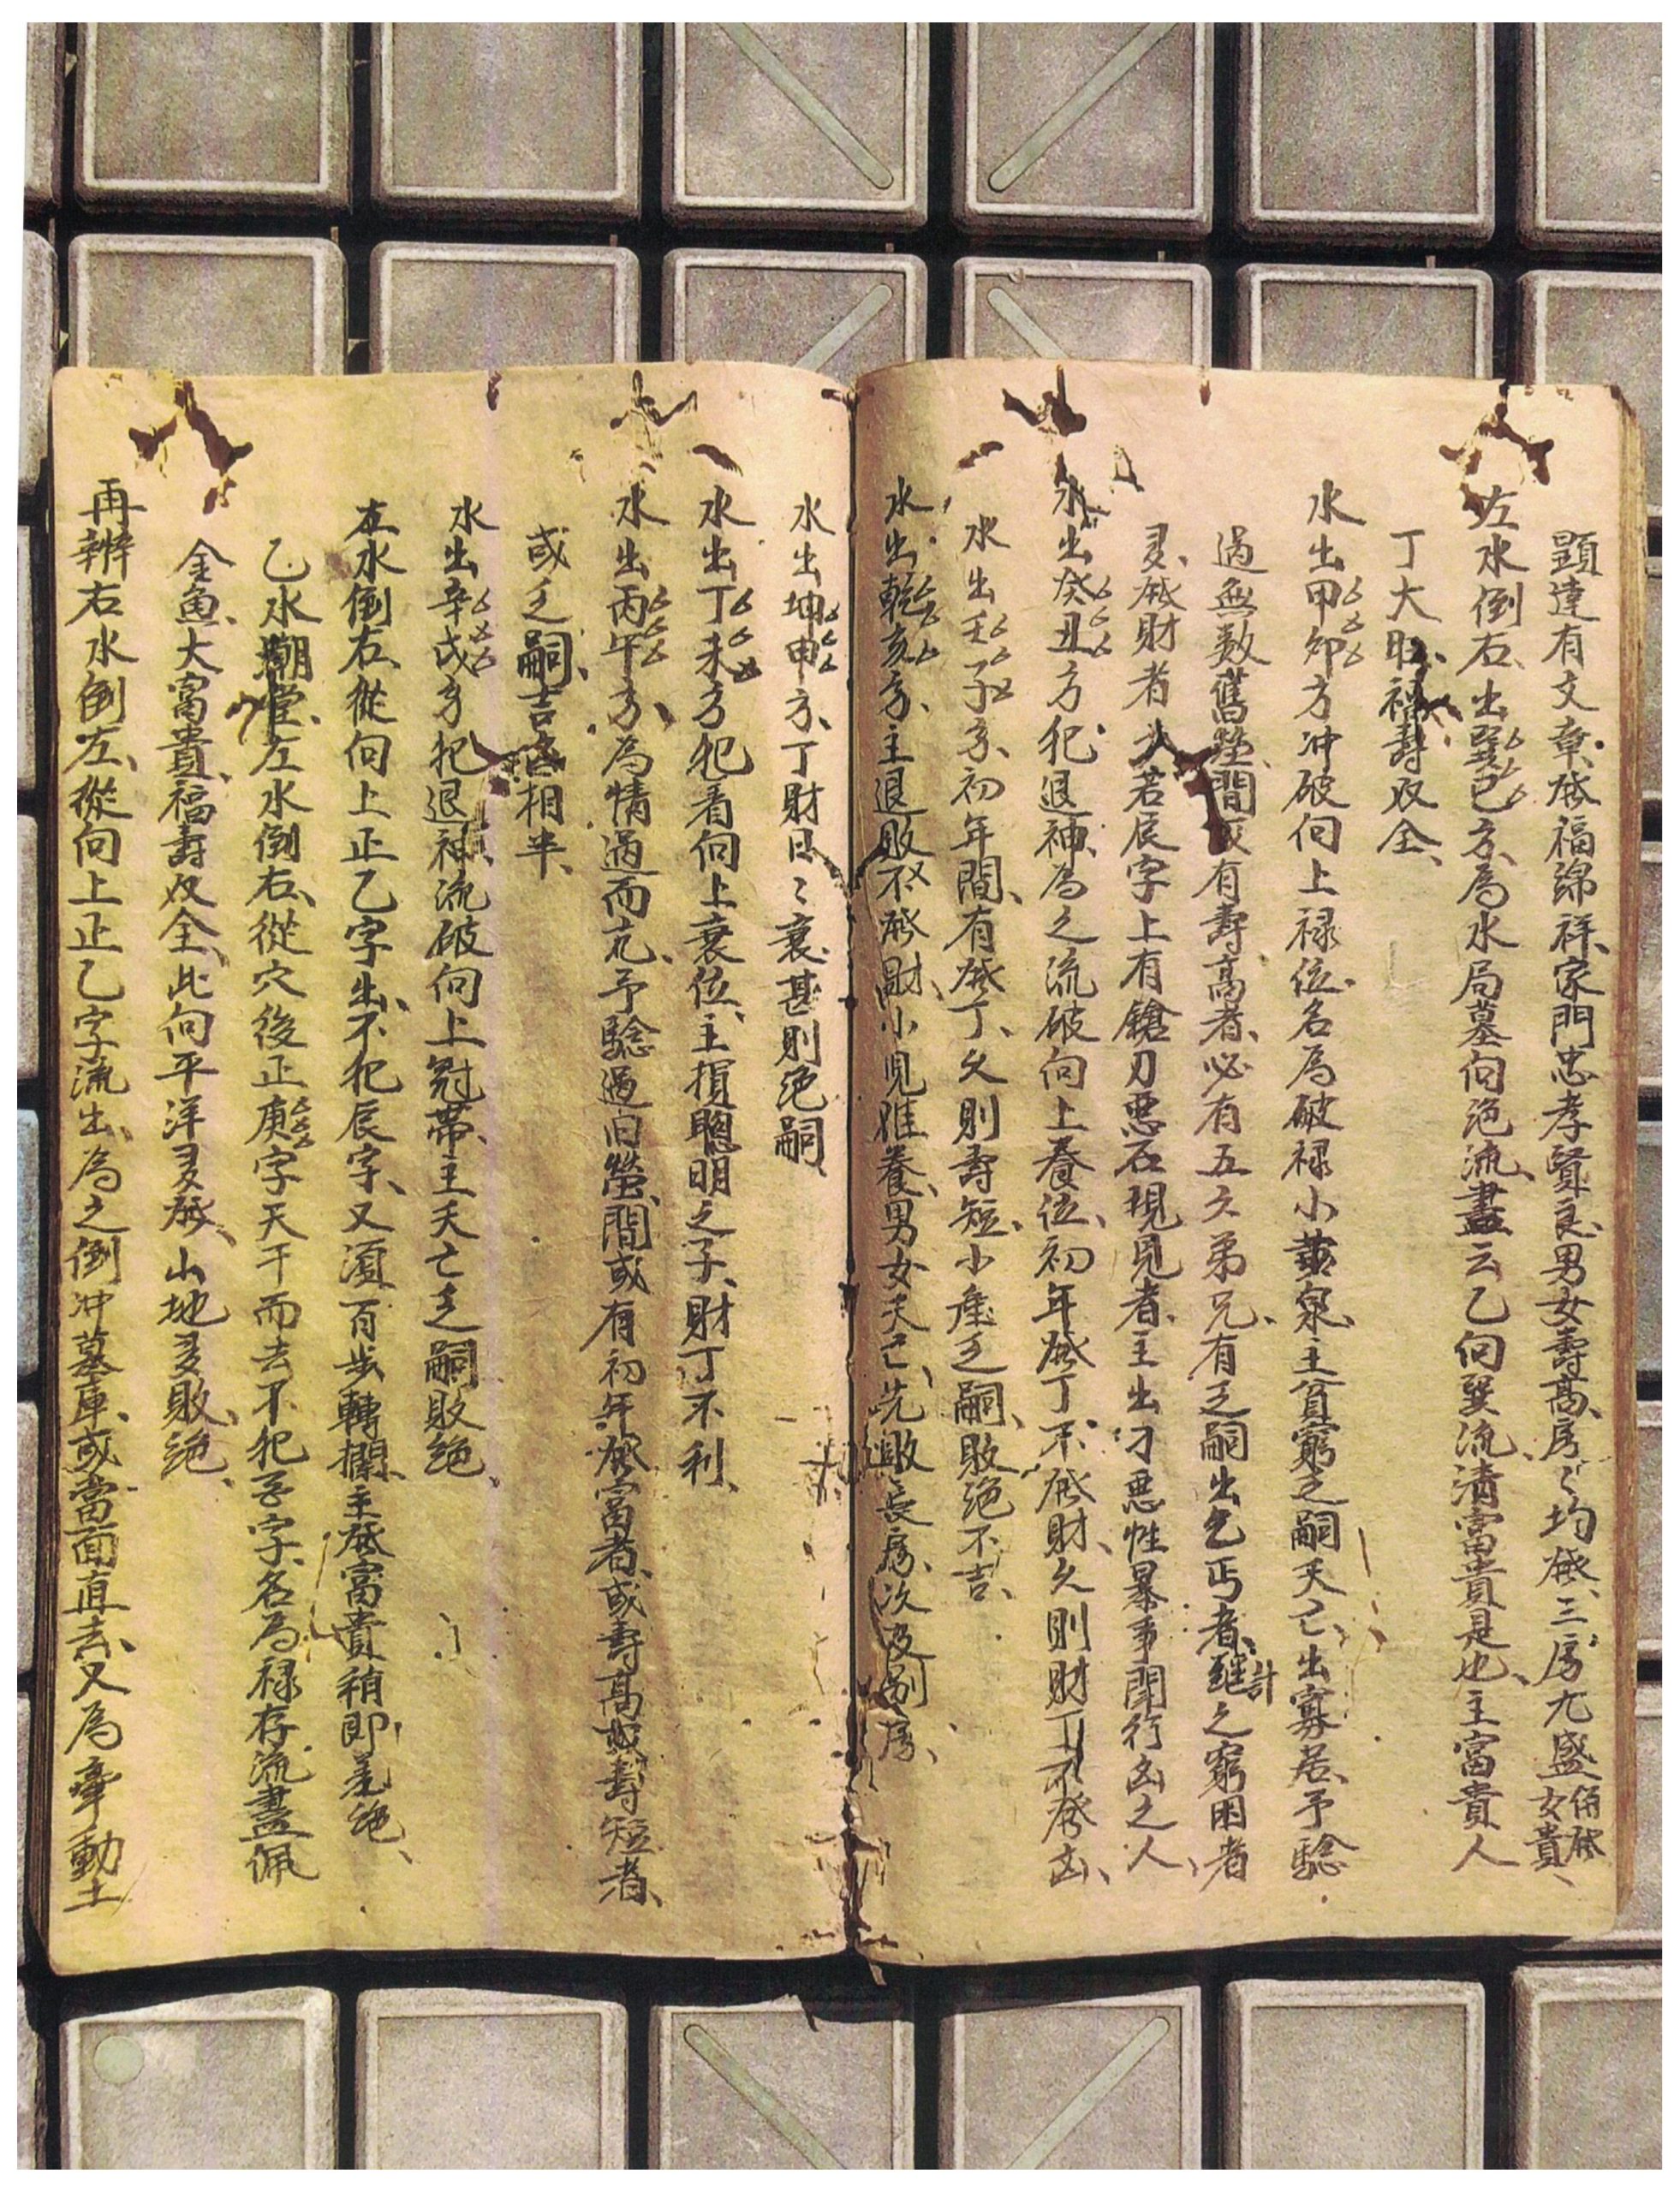 顕達有文章、發福綿祥、家門忠孝賢良、男女壽高、房〻均發、三房尢盛女貴
左水倒右、出巽巳方、為水局墓向絶流、盡云乙向巽流清富貴是也、主富貴人
丁大旺、福壽双全、
水出甲卯方冲破向上禄位、名為破禄小黄泉、主貧窮乏嗣夭亡、出寡居、予驗
過無数舊塋、間或有壽高者、必有五六弟兄、有乏嗣出乞丐者、継之窮困者計
多、發財者少、若辰字上有鎗刀悪石現見者、主出刁悪性暴事鬪行凶之人、
水出癸丑方犯退神、為之流破向上養位、初年發丁不發財、久則財丁不發凶、
水出壬子方、初年間、有發丁、久則壽短、小產乏嗣、敗絶不吉、
水出乾亥方、主退敗不發財、小児难養、男女夭亡、先敗長房、次及別房、
水出坤申方、丁財日〻衰、甚則绝嗣、
水出丁未方犯着向上衰位、主損聰明之子、財丁不利、
水出丙午方、為情過而亢、予驗過旧塋、間或有初年發富者、或壽高或壽短者、
或乏嗣、吉凶相半、
水出辛戌方犯退神、流破向上冠帶、主夭亡乏嗣敗絶、
左水倒右、從向上正乙字出、不犯辰字、又須百步轉欄、主發富貴、稍即差绝、
乙水朝堂、左水倒右、從穴後正庚字天干而去、不犯字、名為禄存流盡佩
金魚、大富貴、福壽双全、此向平洋多發、山地多敗、绝、
再辨右水倒左、從向上正乙字流出、為之倒冲墓庫、或當面直去、又為牽動土